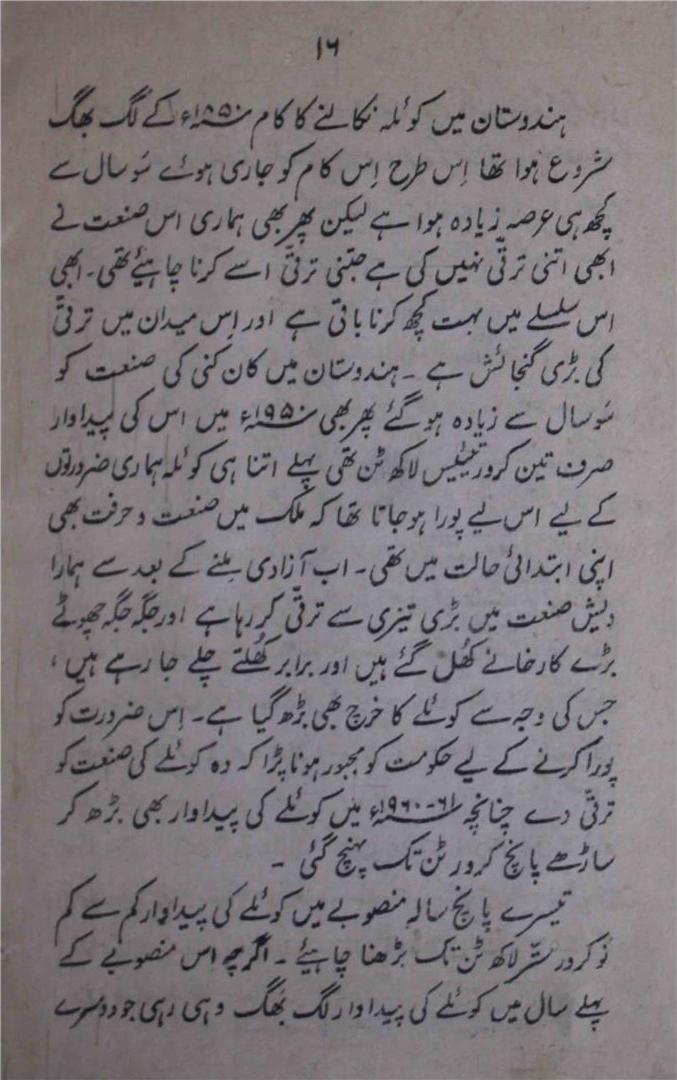 ۱۶
ہندوستان میں کوئلہ نکالنے کا کام ۱۸۵۰ء کے لگ بھگ
شروع ہوا تھا اِس طرح اِس کام کو جاری ہوئے سَو سال سے
کچھ ہی عرصہ زیادہ ہوا ہے لیکن پھر بھی ہماری اس صنعت نے
ابھی اتنی ترقّی نہیں کی ہے جتنی ترقّی اسے کرنا چاہیئے تھی۔ ابھی
اس سلسلے میں بہت کچھ کرنا باقی ہے اور اِس میدان میں ترقّی
کی بڑی گنجائش ہے ۔ ہندوستان میں کان کنی کی صنعت کو
سَو سال سے زیادہ ہو گئے پھر بھی ۱۹۵۰ء میں اس کی پیداوار
صرف تین کرور تیئیس لاکھ ٹن تھی پہلے اتنا ہی کوئلہ ہماری ضرورتوں
کے لیے اس لیے پورا ہو جاتا تھا کہ مُلک میں صنعت و حرفت بھی
اپنی ابتدائی حالت میں تھی۔ اب آزادی ملنے کے بعد سے ہمارا
دیش صنعت میں بڑی تیزی سے ترقّی کر رہا ہے اور جگہ جگہ چھوٹے
بڑے کارخانے کھُل گئے ہیں اور برابر کھُلتے چلے جا رہے ہیں ،
جس کی وجہ سے کوئلے کا خرچ بھی بڑھ گیا ہے۔ اِس ضرورت کو
پورا کرنے کے لیے حکومت کو مجبور ہونا پڑا کہ وہ کوئلے کی صنعت کو
ترقّی دے چنانچہ ۶۱-۱۹۶۰ء میں کوئلے کی پیداوار بھی بڑھ کر
ساڑھے پانچ کرور ٹن تک پہنچ گئی ۔
تیسرے پانچ سالہ منصوبے میں کوئلے کی پیداوار کم سے کم
نو کرور ستّر لاکھ ٹن تک بڑھنا چاہیئے ۔ اگرچہ اس منصوبے کے
پہلے سال میں کوئلے کی پیداوار لگ بھگ وہی رہی جو دوسرے